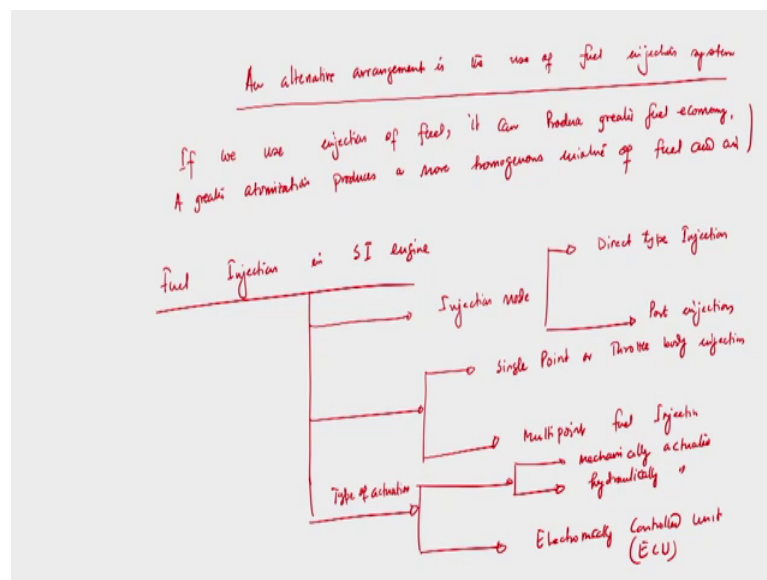 An alternative arrangement is the use of fuel injection system
If we use injection of fuel, it can Produce greater fuel economy.
A greater atomization produces a more homogenous mixture of fuel and air
Fuel Injection in SI engine
Injection mode
Direct type Injection
Port injection
Single Point or Throttle body injection
Multi point fuel Injectin
Type of actuation
mechanically actuated
hydraulically "
Electronically Controlled unit
(ECU)